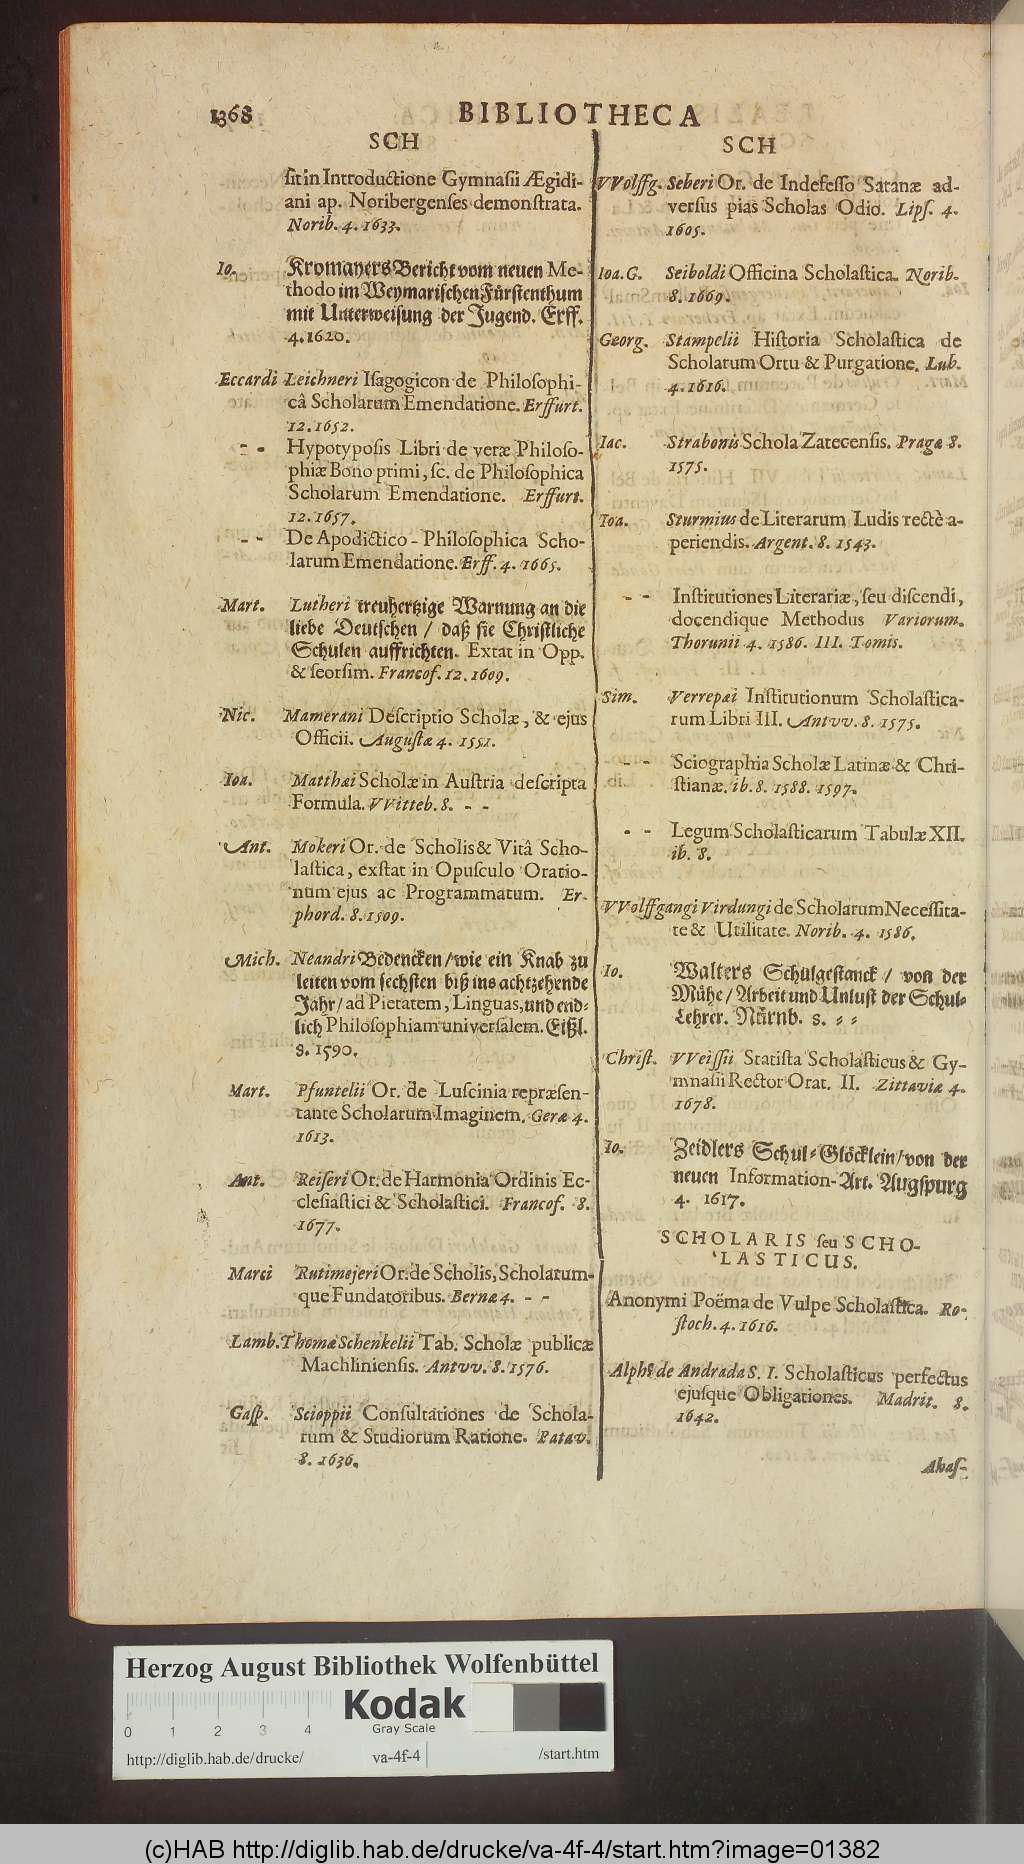 1368
BIBLIOTHECA
SCH
ſit in Introductione Gymnaſii Ægidi-
ani ap. Noribergenſes demonſtrata.
Norib. 4. 1633.
Io. Kromayers Bericht vom neuen Me-
thodo im Weymariſchen Fürſtenthum
mit Unterweiſung der Jugend. Erff.
4. 1620.
Eccardi Leichneri Iſagogicon de Philoſophi-
câ Scholarum Emendatione. Erffurt.
12. 1652.
- - Hypotypoſis Libri de veræ Philoſo-
phiæ Bono primi, ſc. de Philoſophica
Scholarum Emendatione. Erffurt.
12. 1657.
- - De Apodictico - Philoſophica Scho-
larum Emendatione. Erff. 4. 1665.
Mart. Lutheri treuhertzige Warnung an die
liebe Deutſchen / daß ſie Chriſtliche
Schulen auffrichten. Extat in Opp.
& ſeorſim. Francof. 12. 1609.
Nic. Mamerani Deſcriptio Scholæ, & ejus
Officii. Auguſtæ 4. 1551.
Ioa. Matthæi Scholæ in Auſtria deſcripta
Formula. VVitteb. 8. - -
Ant. Mokeri Or. de Scholis & Vitâ Scho-
laſtica, exſtat in Opuſculo Oratio-
num ejus ac Programmatum. Er-
phord. 8. 1509.
Mich. Neandri Bedencken / wie ein Knab zu
leiten vom ſechſten biß ins achtzehende
Jahr / ad Pietatem, Linguas, und end-
lich Philoſophiam univerſalem. Eißl.
8. 1590.
Mart. Pfuntelii Or. de Luſcinia repræſen-
tante Scholarum Imaginem. Geræ 4.
1613.
Ant. Reiſeri Or. de Harmonia Ordinis Ec-
cleſiaſtici & Scholaſtici. Francof. 8.
1677.
Marci Rutimejeri Or. de Scholis, Scholarum-
que Fundatoribus. Bernæ 4. - -
Lamb. Thomæ Schenkelii Tab. Scholæ publicæ
Machlinienſis. Antvv. 8. 1576.
Gaſp. Scioppii Conſultationes de Schola-
rum & Studiorum Ratione. Patav.
8. 1636.
SCH
VVolffg. Seberi Or. de Indefeſſo Satanæ ad-
verſus pias Scholas Odio. Lipſ. 4.
1605.
Ioa. G. Seiboldi Officina Scholaſtica. Norib.
8. 1669.
Georg. Stampelii Hiſtoria Scholaſtica de
Scholarum Ortu & Purgatione. Lub.
4. 1616.
Iac. Strabonis Schola Zatecenſis. Pragæ 8.
1575.
Ioa. Sturmius de Literarum Ludis rectè a-
periendis. Argent. 8. 1543.
- - Inſtitutiones Literariæ, ſeu diſcendi,
docendique Methodus Variorum.
Thorunii 4. 1586. III. Tomis.
Sim. Verrepæi Inſtitutionum Scholaſtica-
rum Libri III. Antvv. 8. 1575.
- - Sciographia Scholæ Latinæ & Chri-
ſtianæ. ib. 8. 1588. 1597.
- - Legum Scholaſticarum Tabulæ XII.
ib. 8.
VVolffgangi Virdungi de Scholarum Neceſſita-
te & Utilitate. Norib. 4. 1586.
Io. Walters Schulgeſtanck / von der
Mühe / Arbeit und Unluſt der Schul-
Lehrer. Nürnb. 8. - -
Chriſt. VVeiſſii Statiſta Scholaſticus & Gy-
mnaſii Rector Orat. II. Zittaviæ 4.
1678.
Io. Zeidlers Schul-Glöcklein / von der
neuen Information-Art. Augſpurg
4. 1617.
SCHOLARIS ſeu SCHO-
LASTICUS.
Anonymi Poëma de Vulpe Scholaſtica. Ro-
ſtoch. 4. 1616.
Alphõ de Andrada S. I. Scholaſticus perfectus
ejuſque Obligationes. Madrit. 8.
1642.
Ahaſ-
Herzog August Bibliothek Wolfenbüttel
Kodak
Gray Scale
0 1 2 3 4
http://diglib.hab.de/drucke/ va-4f-4 /start.htm
(c)HAB http://diglib.hab.de/drucke/va-4f-4/start.htm?image=01382